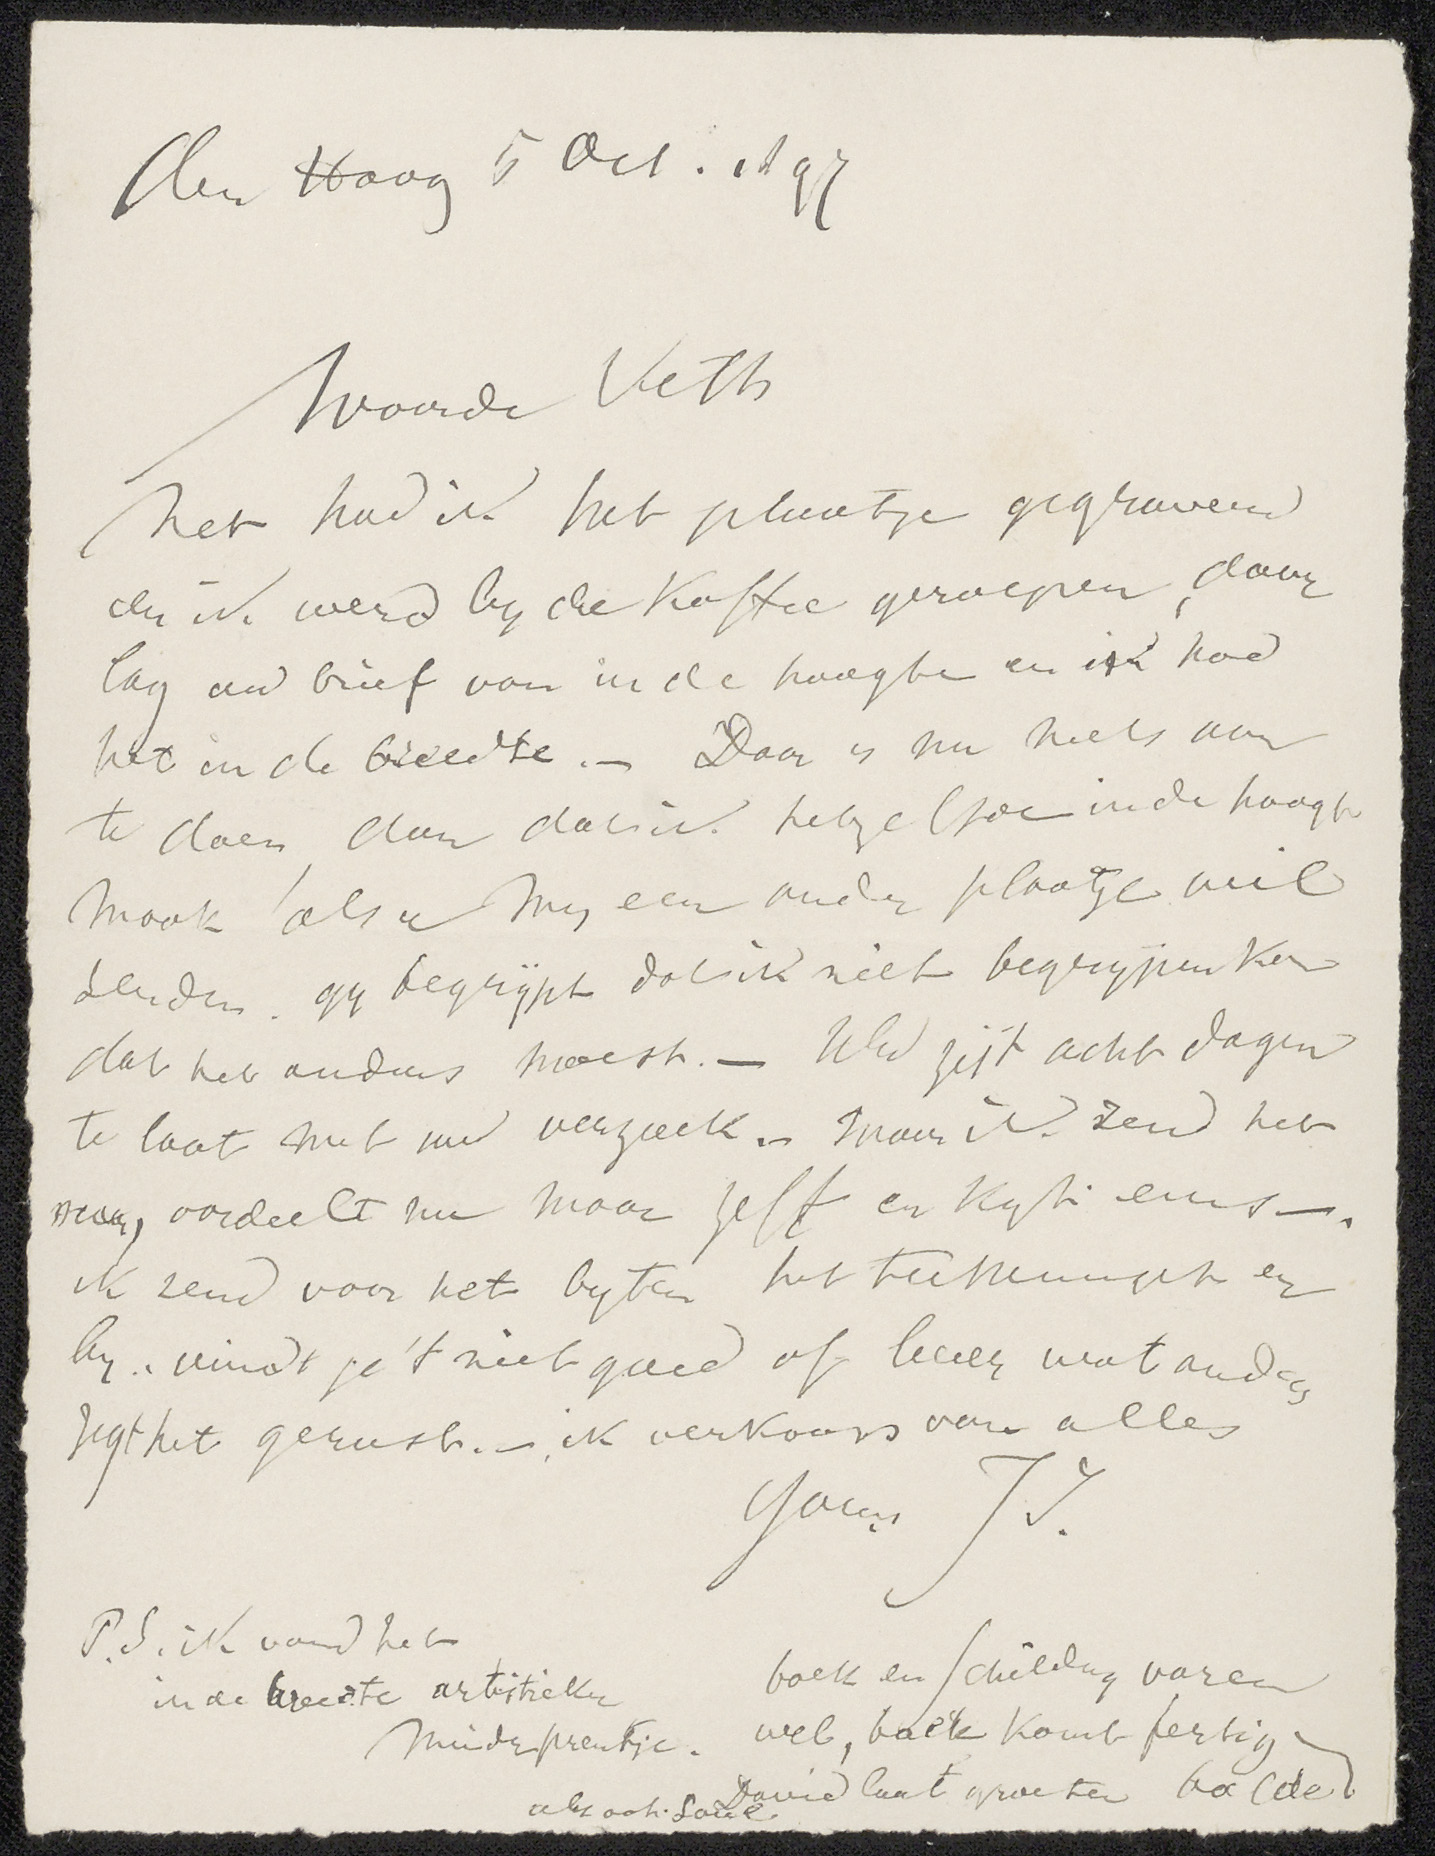 den Haag 5 Oct. 1897
Waarde Veth
Net had ik het plaatje gegraveerd
en ik werd by de Koffie geroepen, daar
lag uw brief van in de hoogte en ik had
het in de breedte. — Daar is nu niets aan
te doen dan dat ik hetzelfde in de hoogte
maak, als u my een ander plaatje wil
zenden. gy begrijpt dat ik niet begrypen Kon
dat het anders moest. — Uw zijt acht dagen
te laat met uw verzoek. — Maar ik zend het
oordeelt nu maar zelf en Kykt eens —.
ik zend voor het byten het teekeningetje er
by. vindt je 't niet goed of liever wat anders
zegt het gerust. — ik verkoop van alles
Yours J I.
P.S. ik vond het
in de breedte artistieker
minder prentje.
boek en schildery varen
wel, boek Komt fertig
David laat groeten
als ook Saul. balde